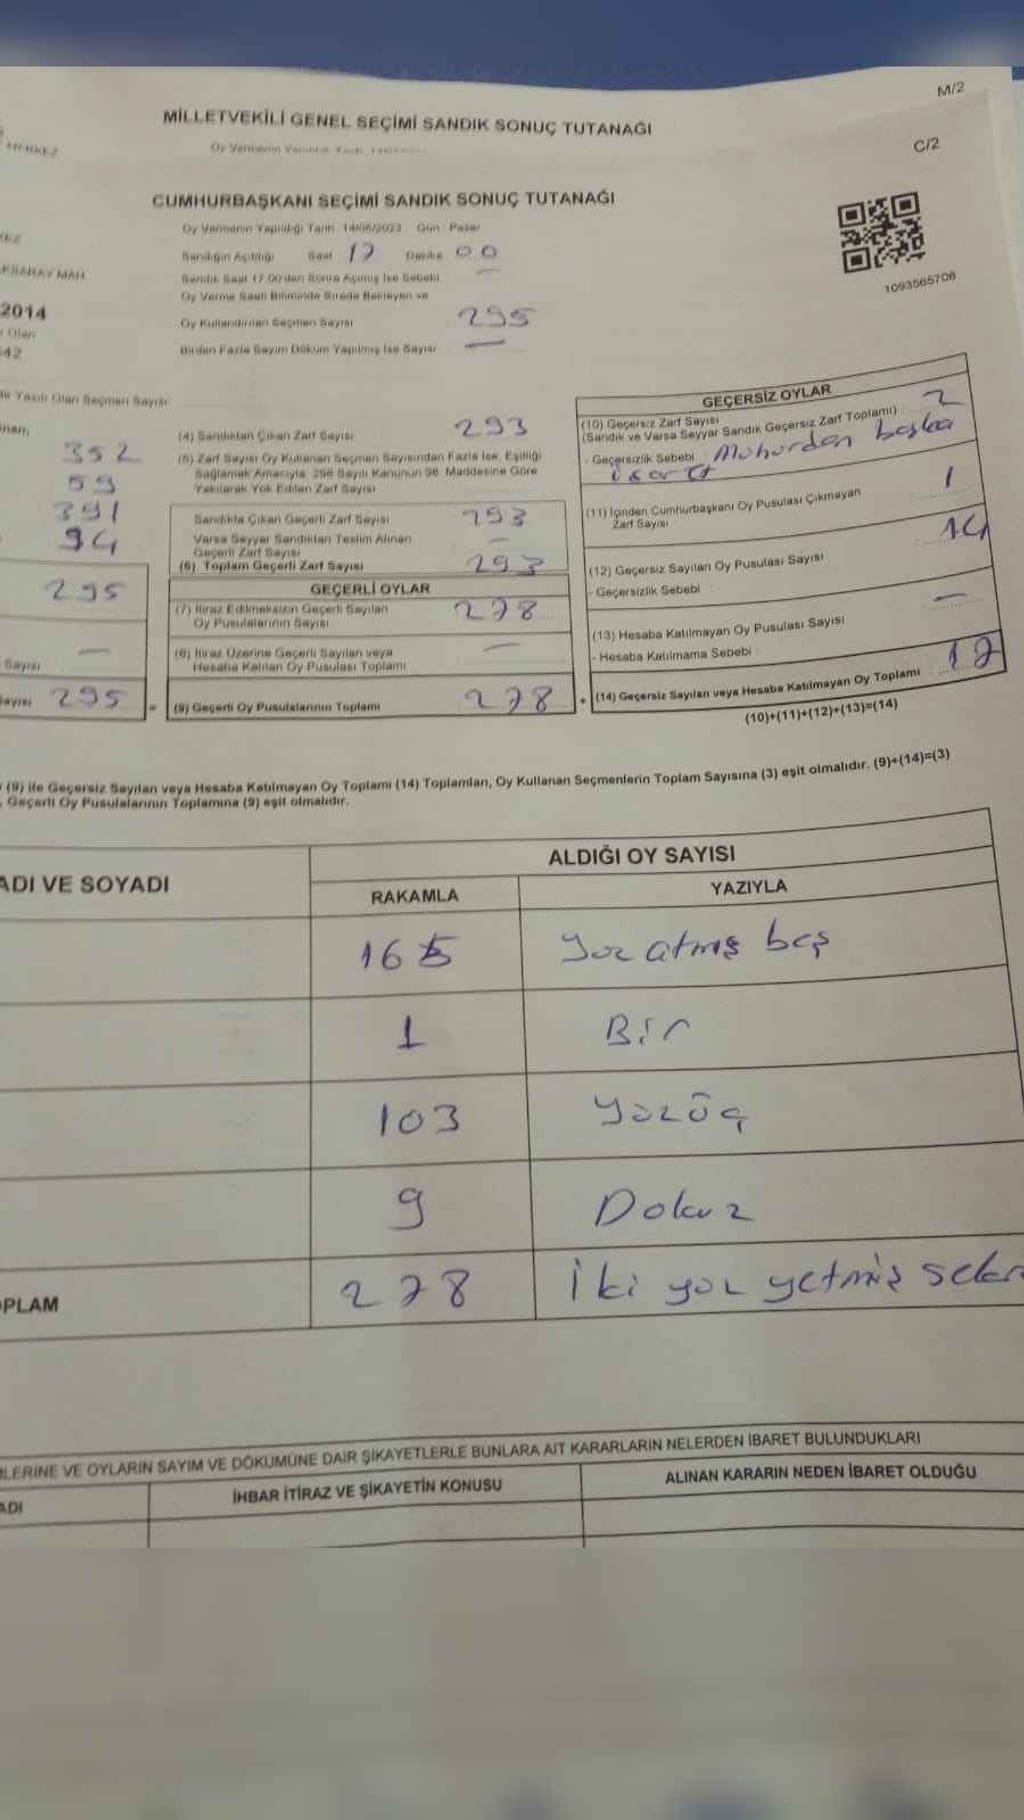 M/2
MİLLETVEKİLİ GENEL SEÇİMİ SANDIK SONUÇ TUTANAĞI
C/2
CUMHURBAŞKANI SEÇİMİ SANDIK SONUÇ TUTANAĞI
Oy Vermenin Yapıldığı Tarih 14/05/2023 Gün Pazar
Sandığın Açıldığı Saat 17 Dakika 00
Sandık Saat 17:00'den Sonra Açılmış İse Sebebi —
Oy Verme Saati Bitiminde Sırada Bekleyen ve
Oy Kullandırılan Seçmen Sayısı 295
Birden Fazla Sayım Döküm Yapılmış İse Sayısı —
1093565706
KSARAY MAH.
2014
Olan
42
Yazılı Olan Seçmen Sayısı
352
59
391
94
295
—
Sayısı
295
(4) Sandıktan Çıkan Zarf Sayısı 293
(5) Zarf Sayısı Oy Kullanan Seçmen Sayısından Fazla İse, Eşitliği
Sağlamak Amacıyla 298 Sayılı Kanunun 98. Maddesine Göre
Yakılarak Yok Edilen Zarf Sayısı
Sandıkta Çıkan Geçerli Zarf Sayısı 293
Varsa Seyyar Sandıktan Teslim Alınan
Geçerli Zarf Sayısı —
(6) Toplam Geçerli Zarf Sayısı 293
GEÇERLİ OYLAR
(7) İtiraz Edilmeksizin Geçerli Sayılan
Oy Pusulalarının Sayısı 278
(8) İtiraz Üzerine Geçerli Sayılan veya
Hesaba Katılan Oy Pusulası Toplamı —
(9) Geçerli Oy Pusulalarının Toplamı 278
GEÇERSİZ OYLAR
(10) Geçersiz Zarf Sayısı 2
(Sandık ve Varsa Seyyar Sandık Geçersiz Zarf Toplamı)
- Geçersizlik Sebebi Mohorden başka
işaret
(11) İçinden Cumhurbaşkanı Oy Pusulası Çıkmayan
Zarf Sayısı 1
(12) Geçersiz Sayılan Oy Pusulası Sayısı 14
- Geçersizlik Sebebi :
(13) Hesaba Katılmayan Oy Pusulası Sayısı —
- Hesaba Katılmama Sebebi :
(14) Geçersiz Sayılan veya Hesaba Katılmayan Oy Toplamı 17
(10)+(11)+(12)+(13)=(14)
(9) ile Geçersiz Sayılan veya Hesaba Katılmayan Oy Toplamı (14) Toplamları, Oy Kullanan Seçmenlerin Toplam Sayısına (3) eşit olmalıdır. (9)+(14)=(3)
Geçerli Oy Pusulalarının Toplamına (9) eşit olmalıdır.
ADI VE SOYADI
ALDIĞI OY SAYISI
RAKAMLA YAZIYLA
165 Yoz atmış beş
1 Bir
103 Yozüç
9 Dokuz
OPLAM 278 İki yoz yetmiş seker
LERİNE VE OYLARIN SAYIM VE DÖKÜMÜNE DAİR ŞİKAYETLERLE BUNLARA AİT KARARLARIN NELERDEN İBARET BULUNDUKLARI
ADI İHBAR İTİRAZ VE ŞİKAYETİN KONUSU ALINAN KARARIN NEDEN İBARET OLDUĞU